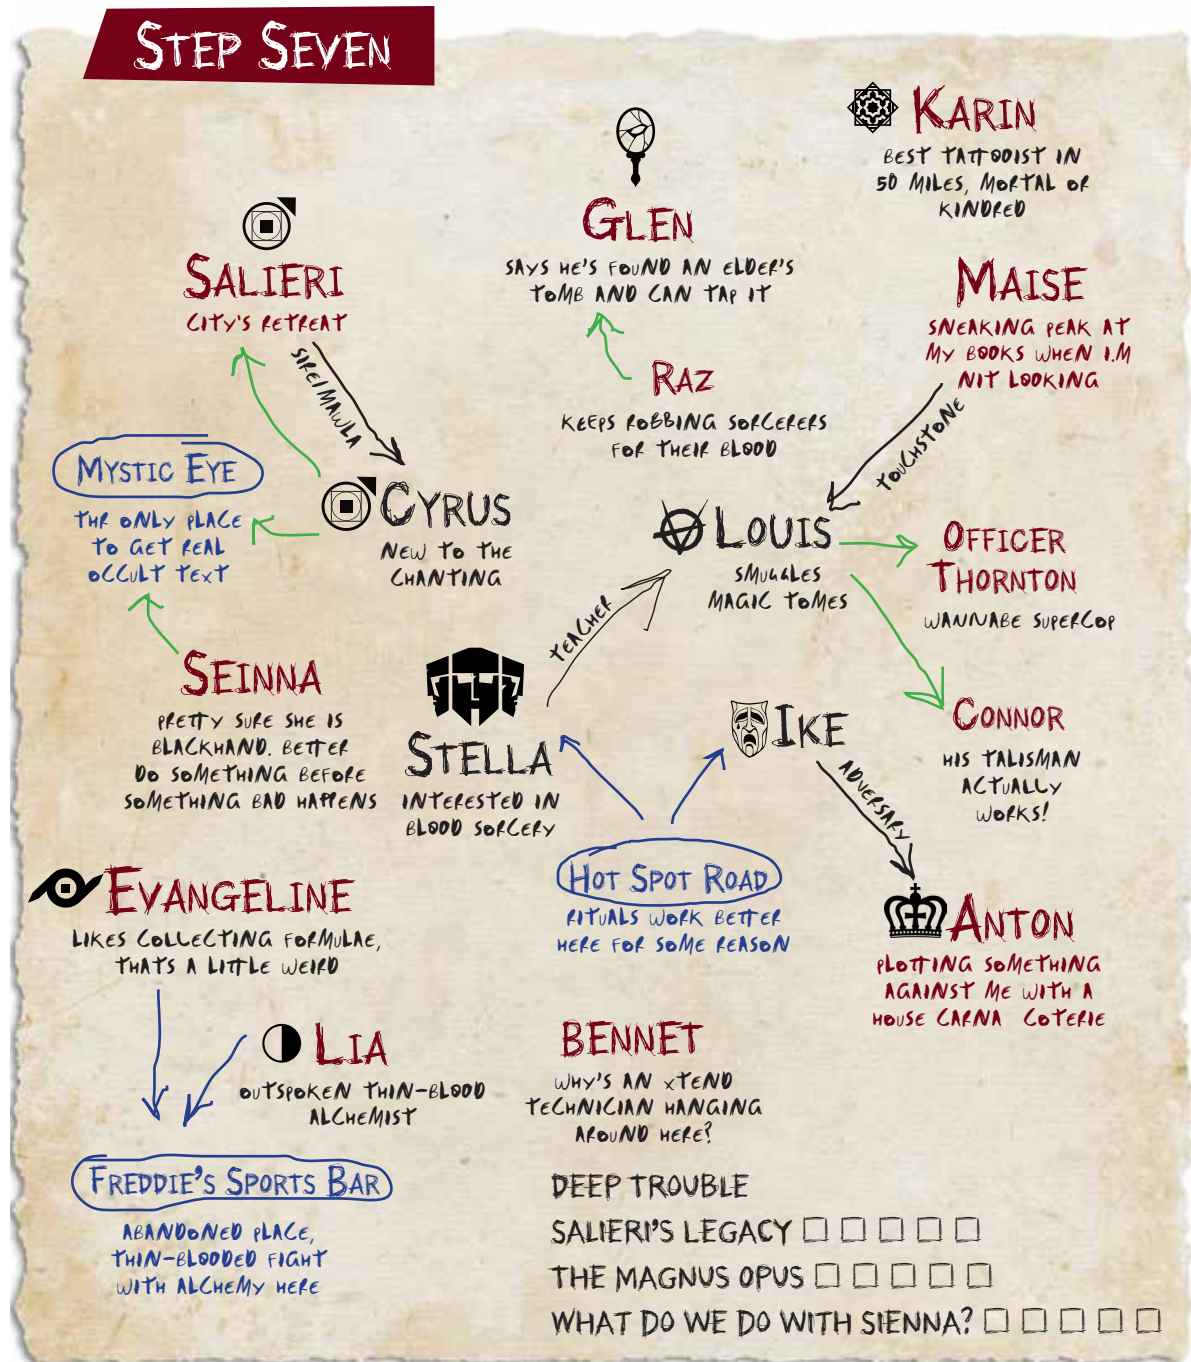 STEP SEVEN
KARIN
BEST TATTOOIST IN
50 MILES, MORTAL OR
KINDRED
GLEN
SAYS HE'S FOUND AN ELDER'S
TOMB AND CAN TAP IT
SALIERI
CITY'S RETREAT
MAISE
SNEAKING PEAK AT
MY BOOKS WHEN I.M
NIT LOOKING
SIRE/MAWLA
RAZ
KEEPS ROBBING SORCERERS
FOR THEIR BLOOD
TOUCHSTONE
MYSTIC EYE
THR ONLY PLACE
TO GET REAL
OCCULT TEXT
CYRUS
NEW TO THE
CHANTING
LOUIS
SMUGGLES
MAGIC TOMES
OFFICER
THORNTON
WANNABE SUPERCOP
TEACHER
SEINNA
PRETTY SURE SHE IS
BLACKHAND. BETTER
DO SOMETHING BEFORE
SOMETHING BAD HAPPENS
STELLA
INTERESTED IN
BLOOD SORCERY
IKE
CONNOR
HIS TALISMAN
ACTUALLY
WORKS!
ADVERSARY
EVANGELINE
LIKES COLLECTING FORMULAE,
THATS A LITTLE WEIRD
HOT SPOT ROAD
RITUALS WORK BETTER
HERE FOR SOME REASON
ANTON
PLOTTING SOMETHING
AGAINST ME WITH A
HOUSE CARNA COTERIE
LIA
OUTSPOKEN THIN-BLOOD
ALCHEMIST
BENNET
WHY'S AN XTEND
TECHNICIAN HANGING
AROUND HERE?
FREDDIE'S SPORTS BAR
ABANDONED PLACE,
THIN-BLOODED FIGHT
WITH ALCHEMY HERE
DEEP TROUBLE
SALIERI'S LEGACY
THE MAGNUS OPUS
WHAT DO WE DO WITH SIENNA?